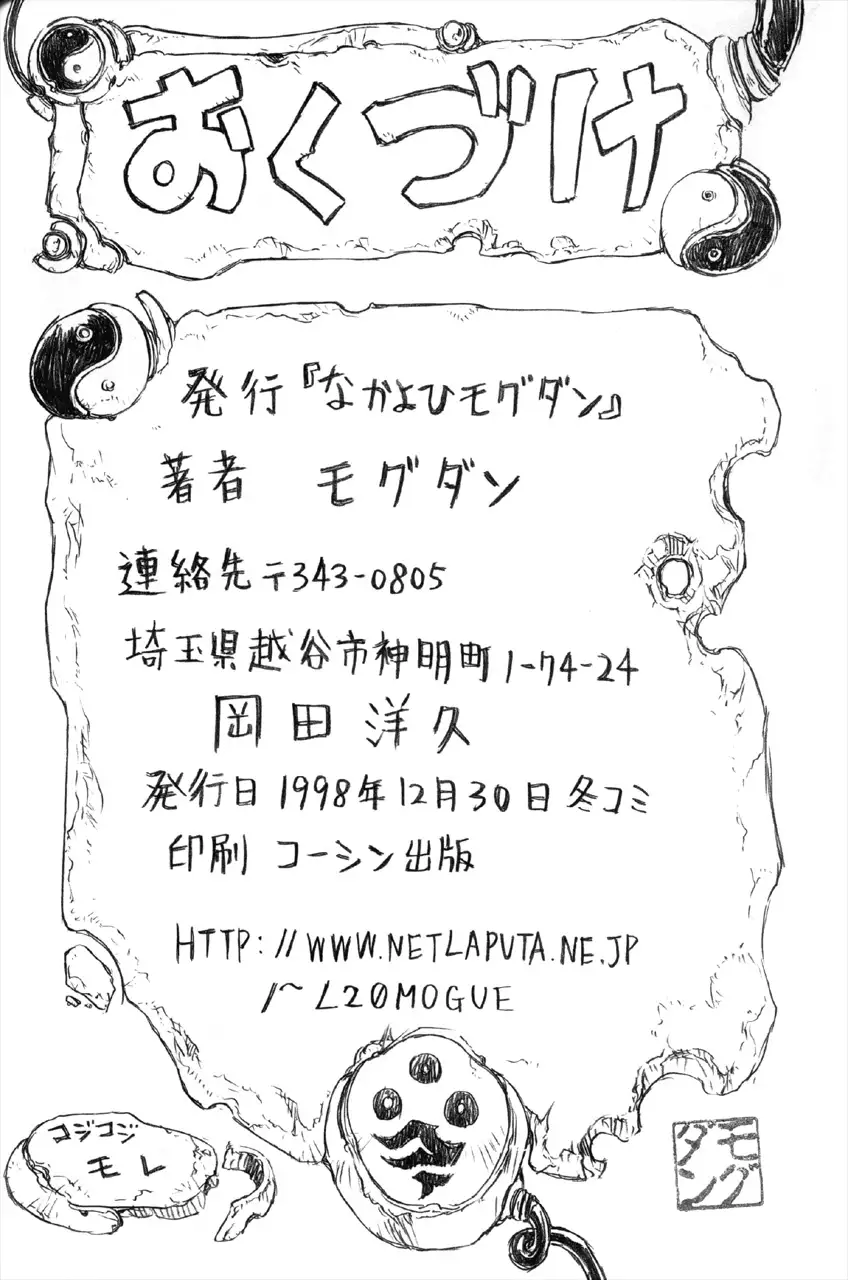 おくづけ
発行『なかよひモグダン』
著者 モグダン
連絡先〒343-0805
埼玉県越谷市神明町1-74-24
岡田洋久
発行日1998年12月30日冬コミ
印刷 コーシン出版
HTTP://WWW.NETLAPUTA.NE.JP
/~L20MOGUE
コジコジ
モレ
モグ
ダン